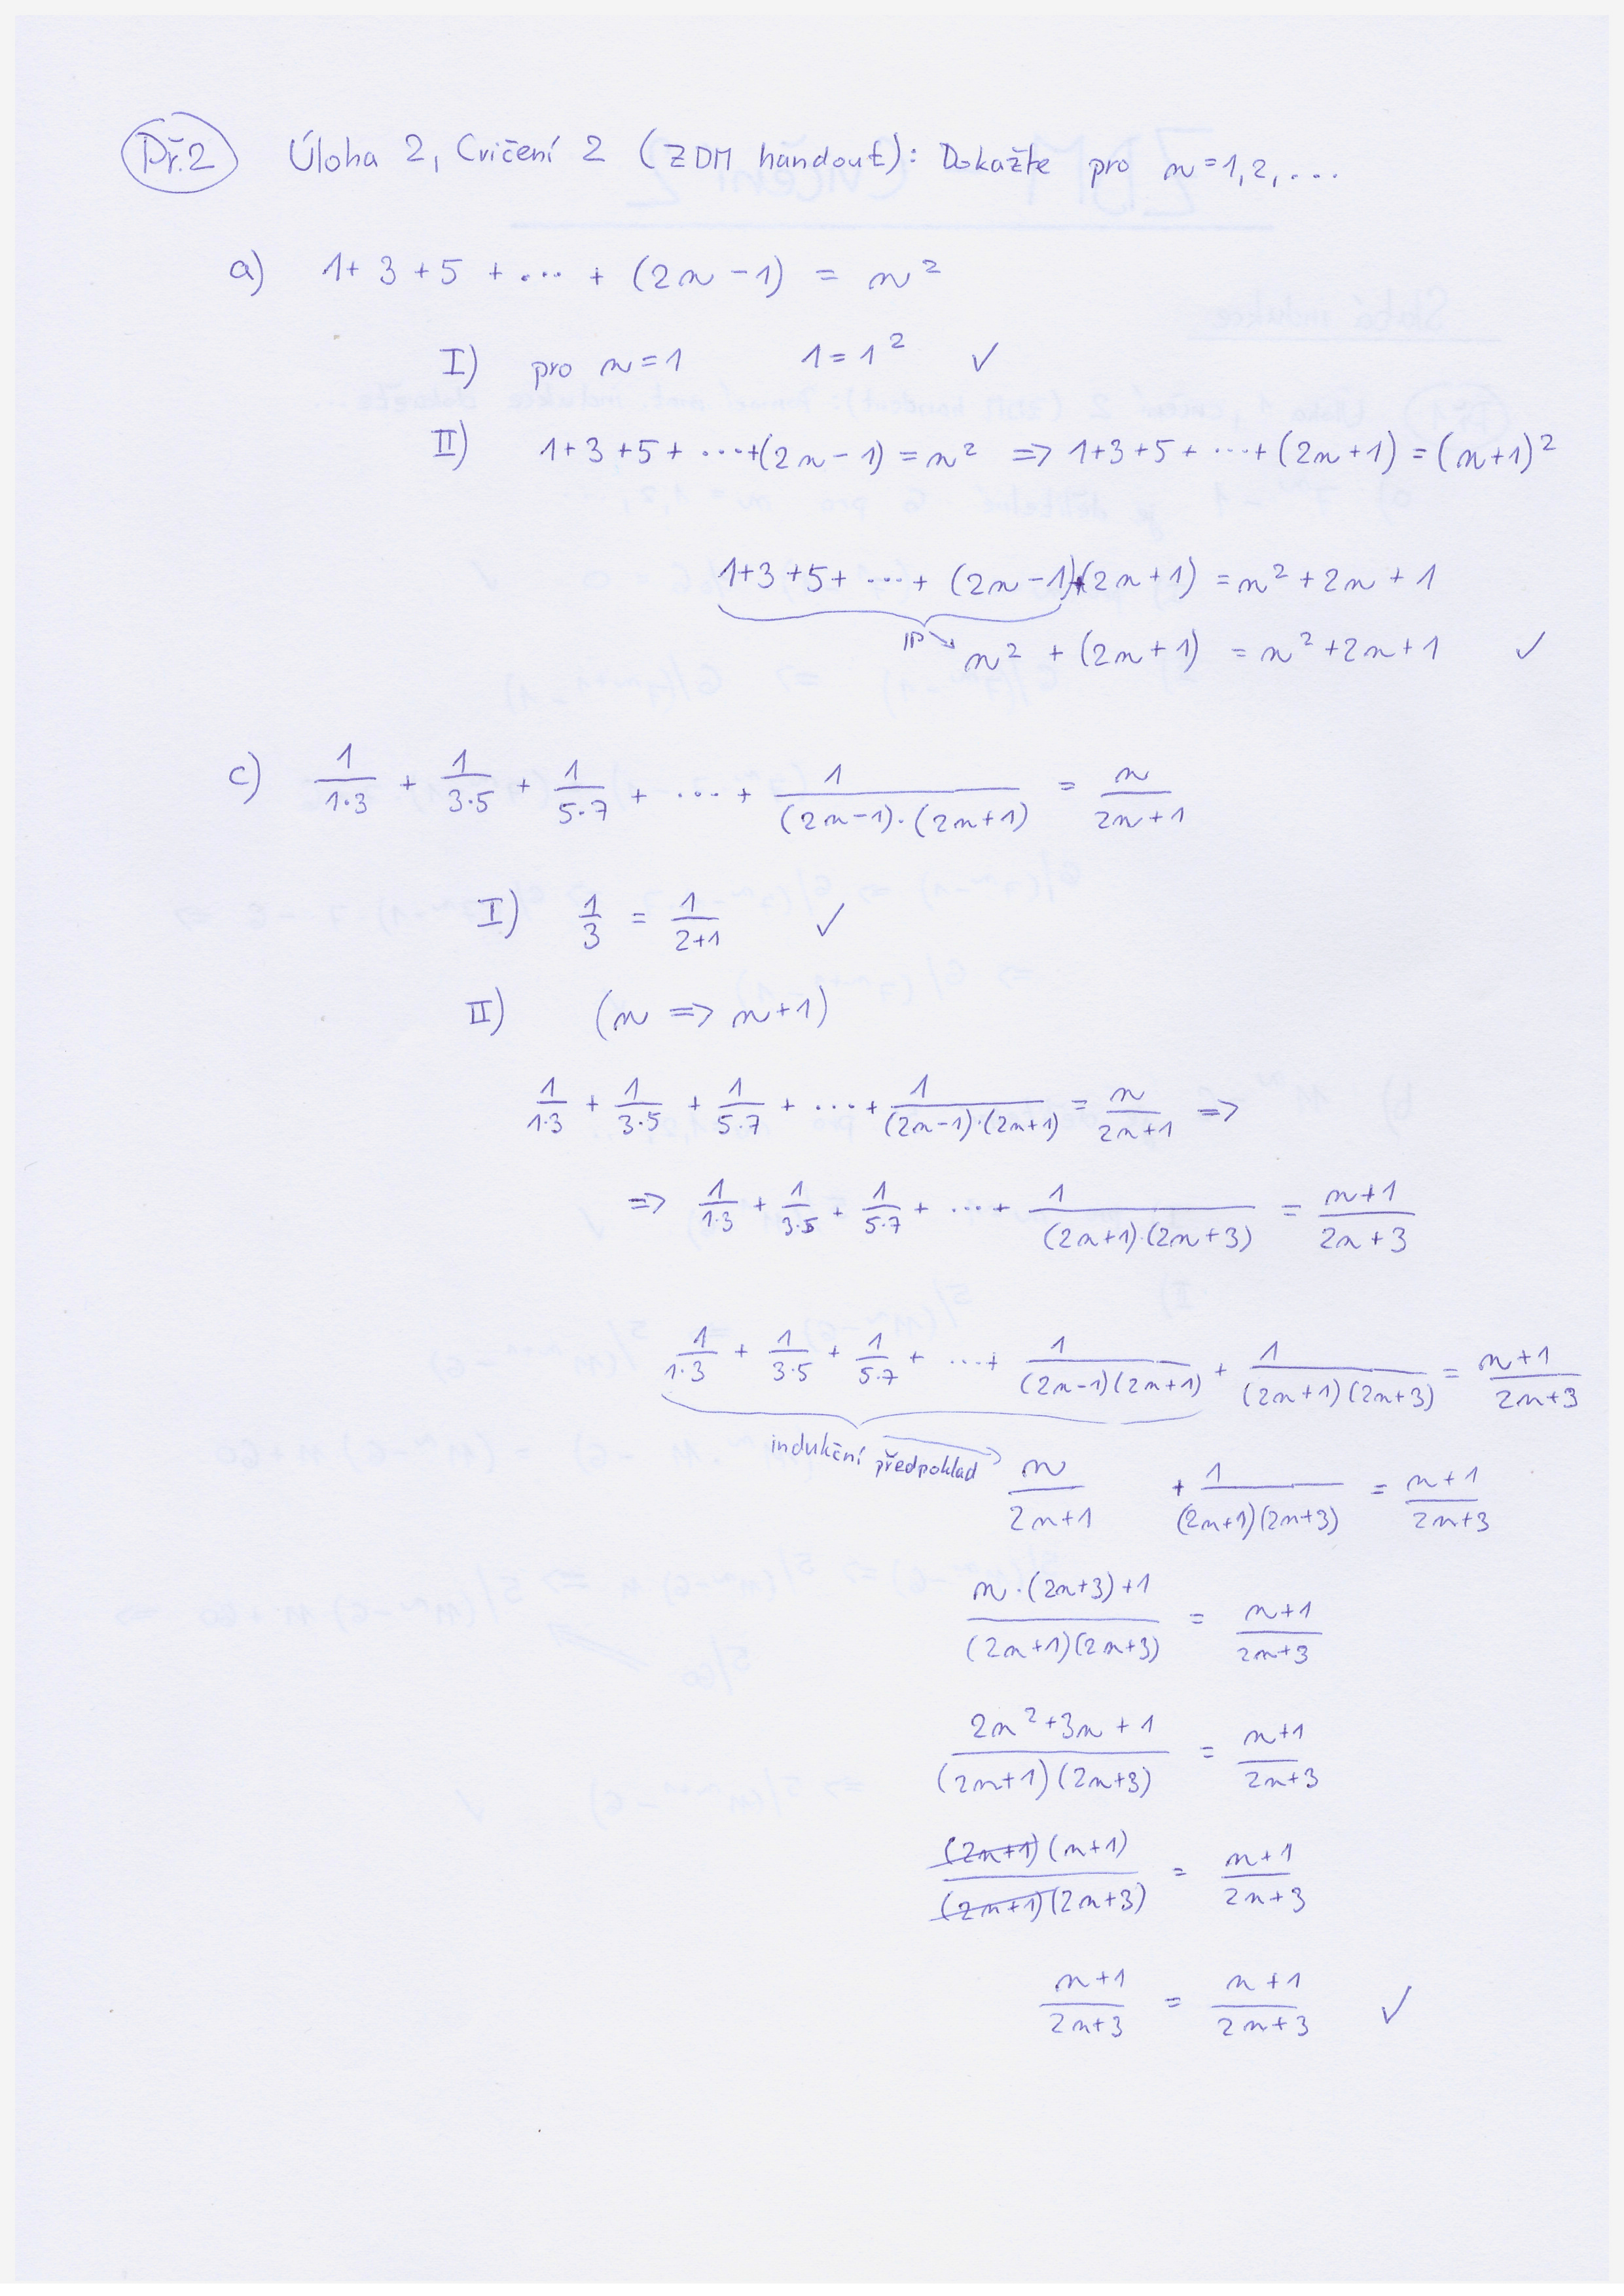 Př.2 Úloha 2, Cvičení 2 (ZDM handout): Dokažte pro n=1,2,...
a) 1+3+5+...+(2n-1) = n²
I) pro n=1 1=1² ✓
II) 1+3+5+...+(2n-1)=n² => 1+3+5+...+(2n+1)=(n+1)²
1+3+5+...+(2n-1)+(2n+1) = n²+2n+1
IP n²+(2n+1) = n²+2n+1 ✓
c) 1/(1·3) + 1/(3·5) + 1/(5·7) + ... + 1/((2n-1)·(2n+1)) = n/(2n+1)
I) 1/3 = 1/(2+1) ✓
II) (n => n+1)
1/(1·3) + 1/(3·5) + 1/(5·7) + ... + 1/((2n-1)·(2n+1)) = n/(2n+1) =>
=> 1/(1·3) + 1/(3·5) + 1/(5·7) + ... + 1/((2n+1)·(2n+3)) = (n+1)/(2n+3)
1/(1·3) + 1/(3·5) + 1/(5·7) + ... + 1/((2n-1)(2n+1)) + 1/((2n+1)(2n+3)) = (n+1)/(2n+3)
indukční předpoklad n/(2n+1) + 1/((2n+1)(2n+3)) = (n+1)/(2n+3)
(n·(2n+3)+1)/((2n+1)(2n+3)) = (n+1)/(2n+3)
(2n²+3n+1)/((2n+1)(2n+3)) = (n+1)/(2n+3)
((2n+1)(n+1))/((2n+1)(2n+3)) = (n+1)/(2n+3)
(n+1)/(2n+3) = (n+1)/(2n+3) ✓